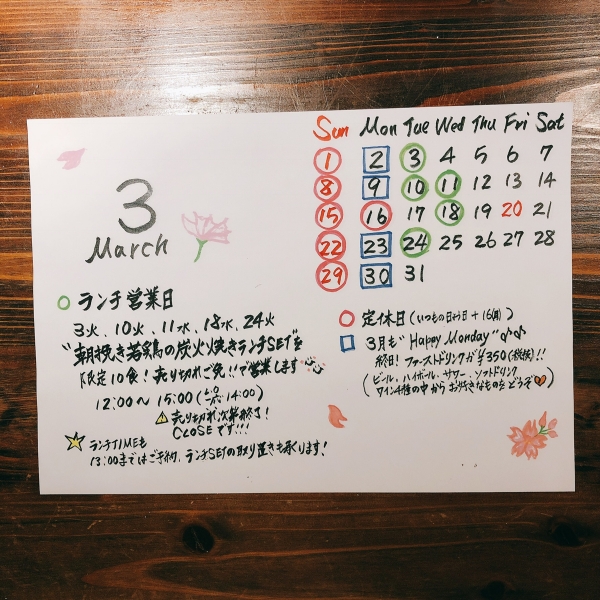 3
March
Sun Mon Tue Wed Thu Fri Sat
1 2 3 4 5 6 7
8 9 10 11 12 13 14
15 16 17 18 19 20 21
22 23 24 25 26 27 28
29 30 31
○ ランチ営業日
3火、10火、11水、18水、24火
"朝挽き若鶏の炭火焼きランチSET"を
限定10食!売り切れご免!!で営業します
12:00〜15:00(L.O 14:00)
売り切れ次第終了!
CLOSEです!!!
ランチTIMEも
13:00まではご予約、ランチSETの取り置きも承ります!
○ 定休日(いつもの日ヨウ日+16(月))
□ 3月も"Happy Monday"♪♪
終日!ファーストドリンクが¥350(税抜)!!
(ビール、ハイボール、サワー、ソフトドリンク
ワイン4種の中からお好きなものをどうぞ)